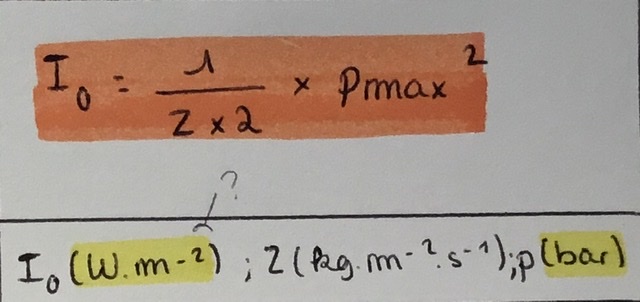 I₀ = 1 / (Z × 2) × pmax²
?
I₀ (W.m⁻²) ; Z (kg.m⁻².s⁻¹); p (bar)